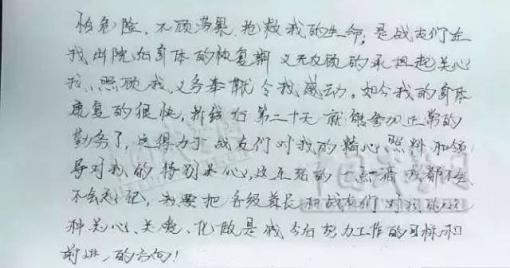 怕危险、不顾后果抢救我的生命,是战友们在
我出院后身体的恢复期义无反顾的承担起关心
我、照顾我义务奉献令我感动,如今我的身体
康复的很快,并能在第二十天就能参加正常的
勤务了,这得力于战友们对我的精心照料和领
导对我的特别关心,这点点的一点一滴我都不会
不会忘记,我要把各级首长和战友们对我的这
种关心、关爱、化做是我今后努力工作的目标和
前进的方向!